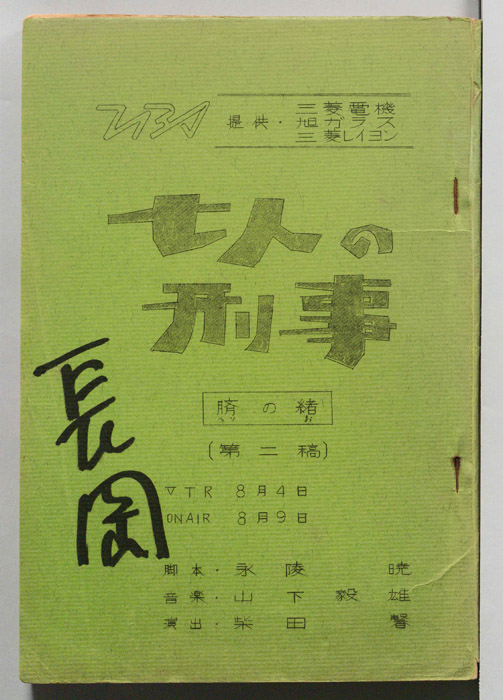 TBS
提供・
三菱電機
旭ガラス
三菱レイヨン
七人の
刑事
臍の緒
へそ お
(第二稿)
VTR 8月4日
ONAIR 8月9日
脚本・永陵 暁
音楽・山下毅雄
演出・柴田 馨
長岡